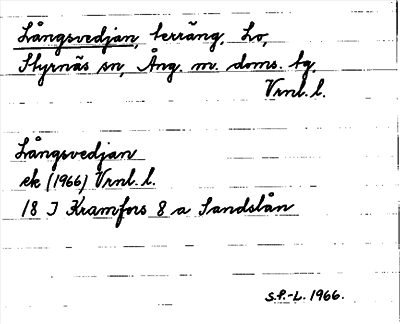 Långsvedjan, terräng, Lo,
Styrnäs sn, Ång. m. doms. tg,
Vrnl. l.
Långsvedjan
ek (1966) Vrnl. l.
18 J Kramfors 8 a Sandslån
S.P.-L. 1966.